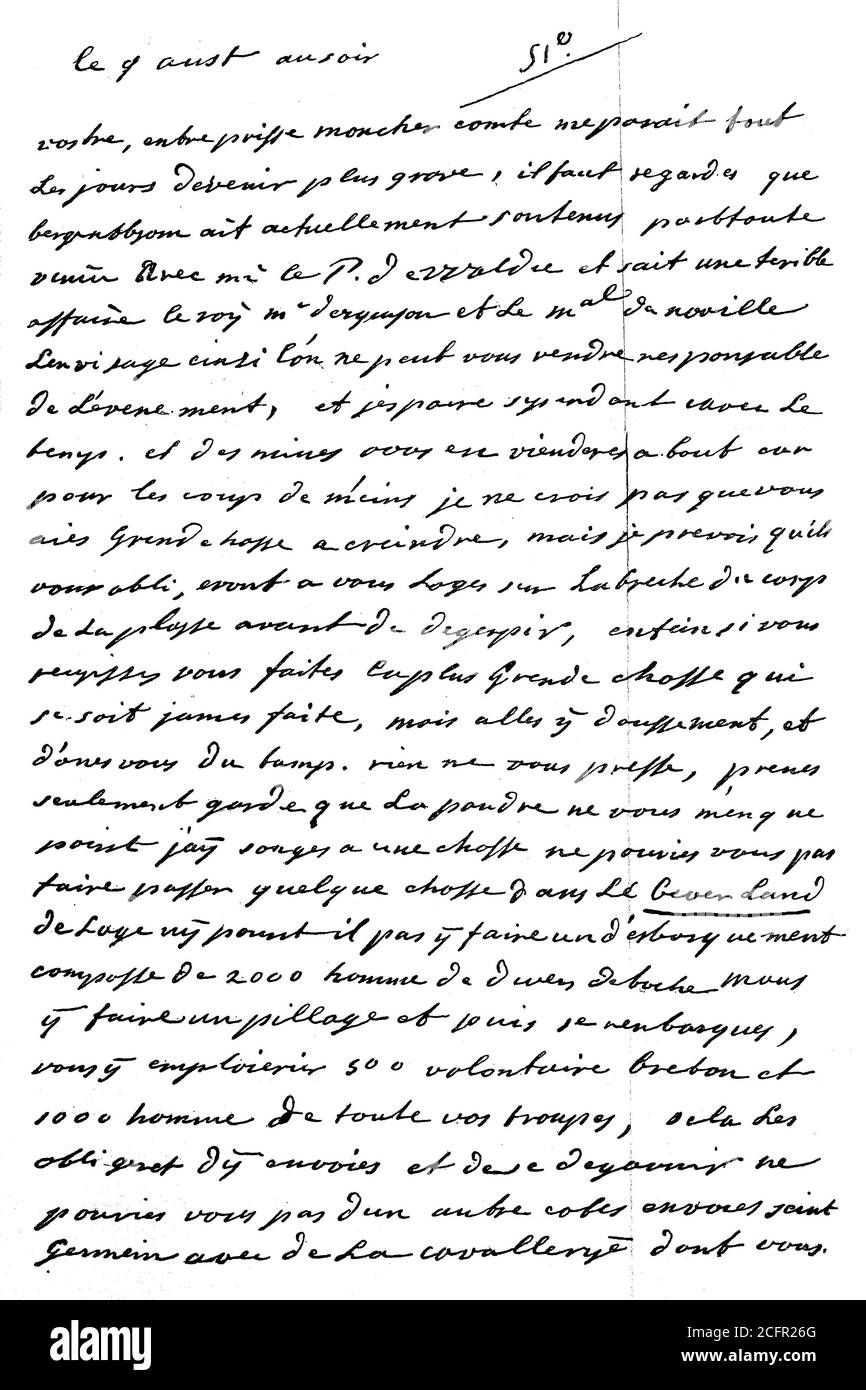 le 9 aust au soir 51e.
vostre, entreprisse moncher comte me parait tout
Les jours devenir plus grave, il faut regarder que
bergentzom ait actuellement soutenus partoute
Avec mr le P. de et sait une terible
affaire le roy mr et Le mal de noville
Lenvisage einsi lon ne peut vous rendre responsable
de L'evenement, et j'espaere sependant avec Le
temps. et des mines vous en vienderes a bout car
pour les coup de meins je ne crois pas que vous
aies Grende chosse a creindre, mais je prevois qu'ils
vous obligeront a vous Loger sur La breche du corp
de La plasse avant de degerpir, enfein si vous
reussisses vous faites La plus Grende chosse qui
se soit james faite, mais alles y doussement, et
d'ones vous du tamp. rien ne vous presse, prenes
seulement garde que La poudre ne vous menque
point j'ay songes a une chosse ne pouries vous pas
faire passer quelque chosse dans Le Bever Land
de Loge ny pourt il pas y faire un desbarquement
composse de 2000 homme de
y faire un pillage et puis se renbarques,
vous y emploieries 500 volontaire breton et
1000 homme de toute vos troupes, sela Les
obligeret d'y envoies et de se degarnir ne
pouries vous pas dun autre cotes envoies seint
Germein avec de La cavallerye dont vous.
alamy
Image ID: 2CFR26G
www.alamy.com